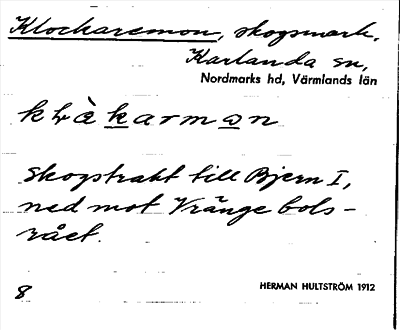 Klockaremon, skogsmark,
Karlanda sn,
Nordmarks hd, Värmlands län
klɑ̀karman
Skogstrakt till Bjern I,
ned mot Vränge bols-
rået.
8
HERMAN HULTSTRÖM 1912